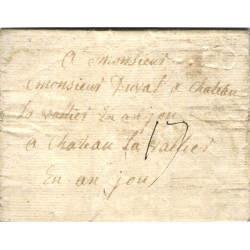 A monsieur
monsieur Duval a chateau
la vallier en anjou
a Chateau la vallier
En an jou
17